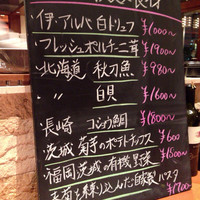 ・伊・アルバ 白トリュフ ¥1000〜
・フレッシュポルチーニ茸 ¥1900〜
・北海道 秋刀魚 ¥980〜
・〃 白貝 ¥1600〜
・長崎 コショウ鯛 ¥1800〜
・茨城 菊芋のポテトチップス ¥600
・福岡茨城の有機野菜 ¥1500〜
を練り込んだ自家製パスタ ¥1700〜